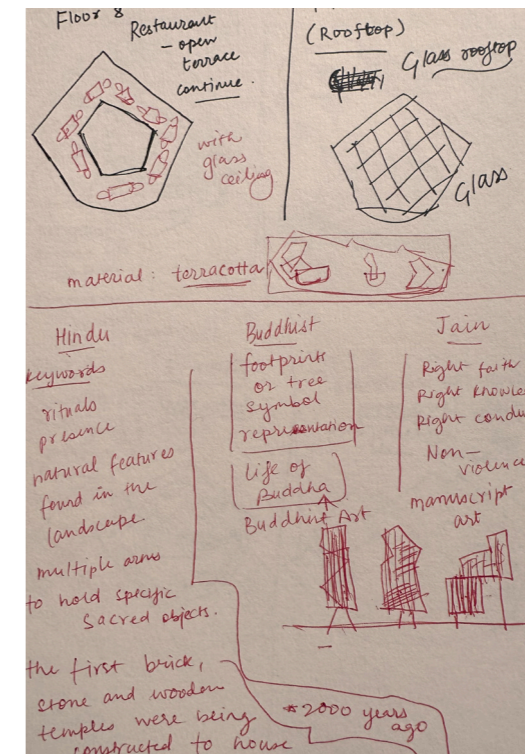 Floor 8
Restaurant
- open
terrace
continue.
with
glass
ceiling
(Rooftop)
Glass rooftop
Glass
material: terracotta
Hindu
keywords
rituals
presence
natural features
found in the
landscape
multiple arms
to hold specific
sacred objects.
the first brick,
stone and wooden
temples were being
constructed to house
Buddhist
footprints
or tree
symbol
representation
Life of
Buddha
Buddhist Art
*2000 years
ago
Jain
Right faith
Right
Right
Non-
violence
manuscript
art